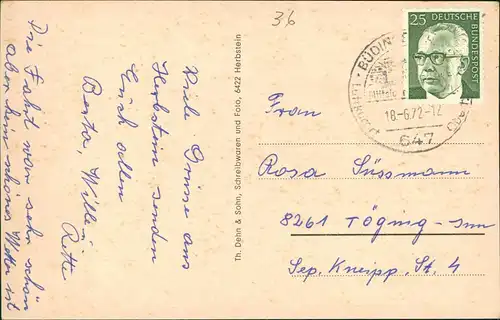 36
Viele Grüsse aus
Herbstein senden
Euch allen
Berta, Willi,
Die Fahrt war sehr schön
aber kein schönes Wetter ist
Th. Dehn & Sohn, Schreibwaren und Foto, 6422 Herbstein
25 DEUTSCHE BUNDESPOST
BÜDIN
Luftkurort
18-6.72-12
647
Frau
Rosa Süssmann
8261 Töging-Inn
Sep. Kneipp. St. 4